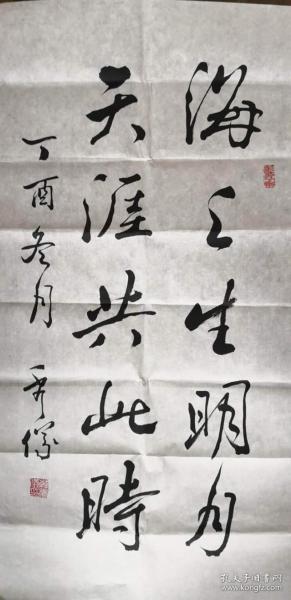 海上生明月
天涯共此時
丁酉冬月
孔夫子旧书网